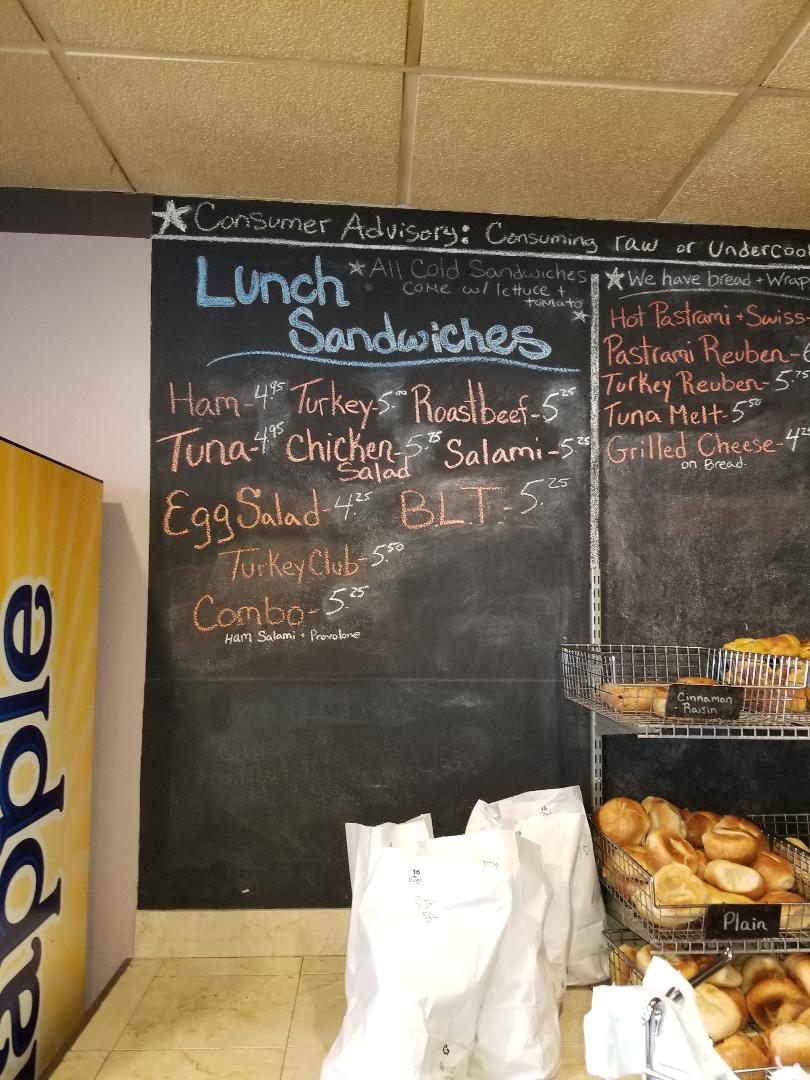 ★Consumer Advisory: Consuming raw or Undercoo
Lunch
Sandwiches
★All Cold Sandwiches
come w/ lettuce +
tomato ★
Ham-4.95 Turkey-5.00 Roastbeef-5.25
Tuna-4.95 Chicken-5.75 Salami-5.25
Salad
Egg Salad-4.25 B.L.T.-5.25
Turkey Club-5.50
Combo-5.25
Ham Salami + Provolone
★We have bread + Wrap
Hot Pastrami + Swiss-
Pastrami Reuben-
Turkey Reuben-5.75
Tuna Melt-5.50
Grilled Cheese-4.25
on Bread
Cinnamon
Raisin
Plain
apple
16
16